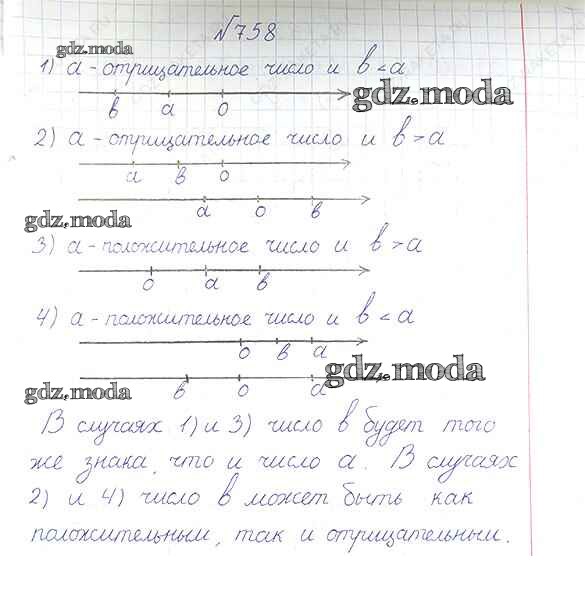 №758
gdz.moda
1) а - отрицательное число и в < а
в а 0
gdz.moda
2) а - отрицательное число и в > а
а в 0
а 0 в
gdz.moda
3) а - положительное число и в > а
0 а в
4) а - положительное число и в < а
0 в а
gdz.moda
в 0 а
gdz.moda
В случаях 1) и 3) число в будет того
же знака, что и число а. В случаях
2) и 4) число в может быть как
положительным, так и отрицательным.